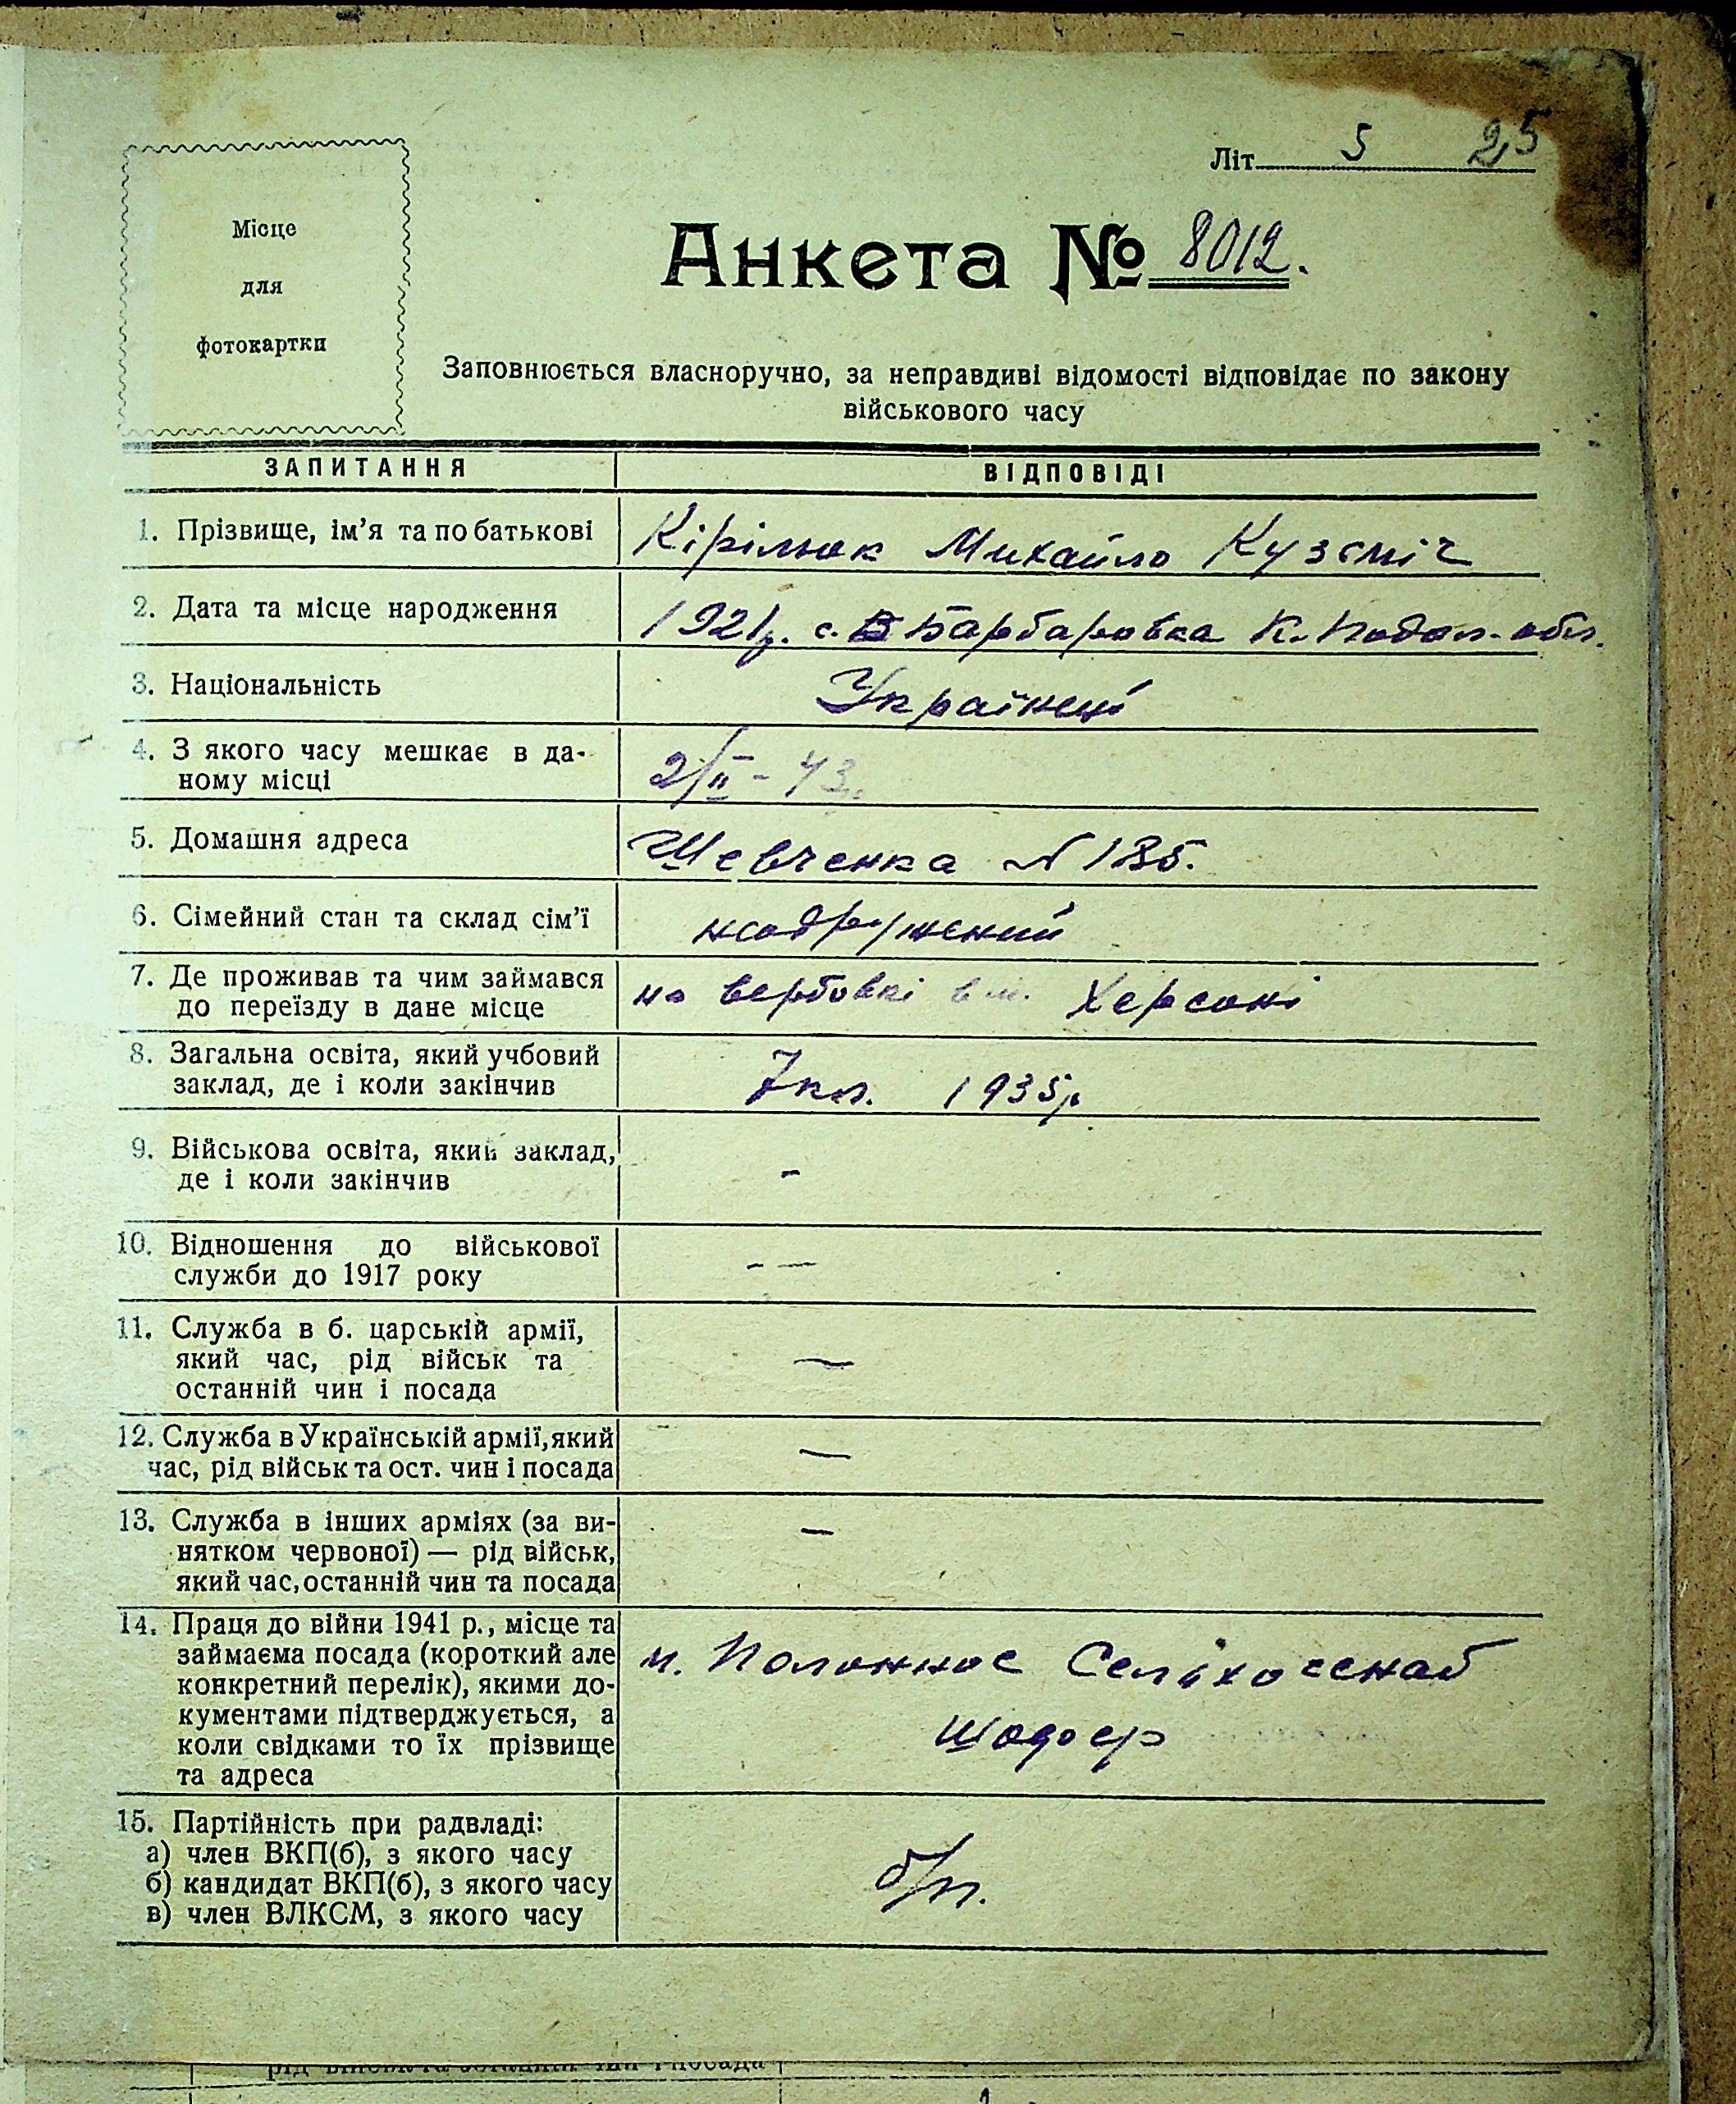 Літ 5 25
Місце
для
фотокартки
Анкета № 8012.
Заповнюється власноручно, за неправдиві відомості відповідає по закону
військового часу
ЗАПИТАННЯ ВІДПОВІДІ
1. Прізвище, ім'я та по батькові Кірілюк Михайло Кузьміч
2. Дата та місце народження 1921р. с. Барбаровка К. Подол. обл.
3. Національність Українець
4. З якого часу мешкає в да-
ному місці 2/II - 43р.
5. Домашня адреса Шевченка № 135.
6. Сімейний стан та склад сім'ї
7. Де проживав та чим займався
до переїзду в дане місце на вербовкі в м. Херсоні
8. Загальна освіта, який учбовий
заклад, де і коли закінчив 7 кл. 1935р
9. Військова освіта, який заклад,
де і коли закінчив -
10. Відношення до військової
служби до 1917 року - —
11. Служба в б. царській армії,
який час, рід військ та —
останній чин і посада
12. Служба в Українській армії, який —
час, рід військ та ост. чин і посада
13. Служба в інших арміях (за ви- —
нятком червоної) — рід військ,
який час, останній чин та посада
14. Праця до війни 1941 р., місце та
займаєма посада (короткий але м. Полонное Селіхоснаб
конкретний перелік), якими до-
кументами підтверджується, а
коли свідками то їх прізвище шофер
та адреса
15. Партійність при радвладі:
а) член ВКП(б), з якого часу
б) кандидат ВКП(б), з якого часу б/п.
в) член ВЛКСМ, з якого часу